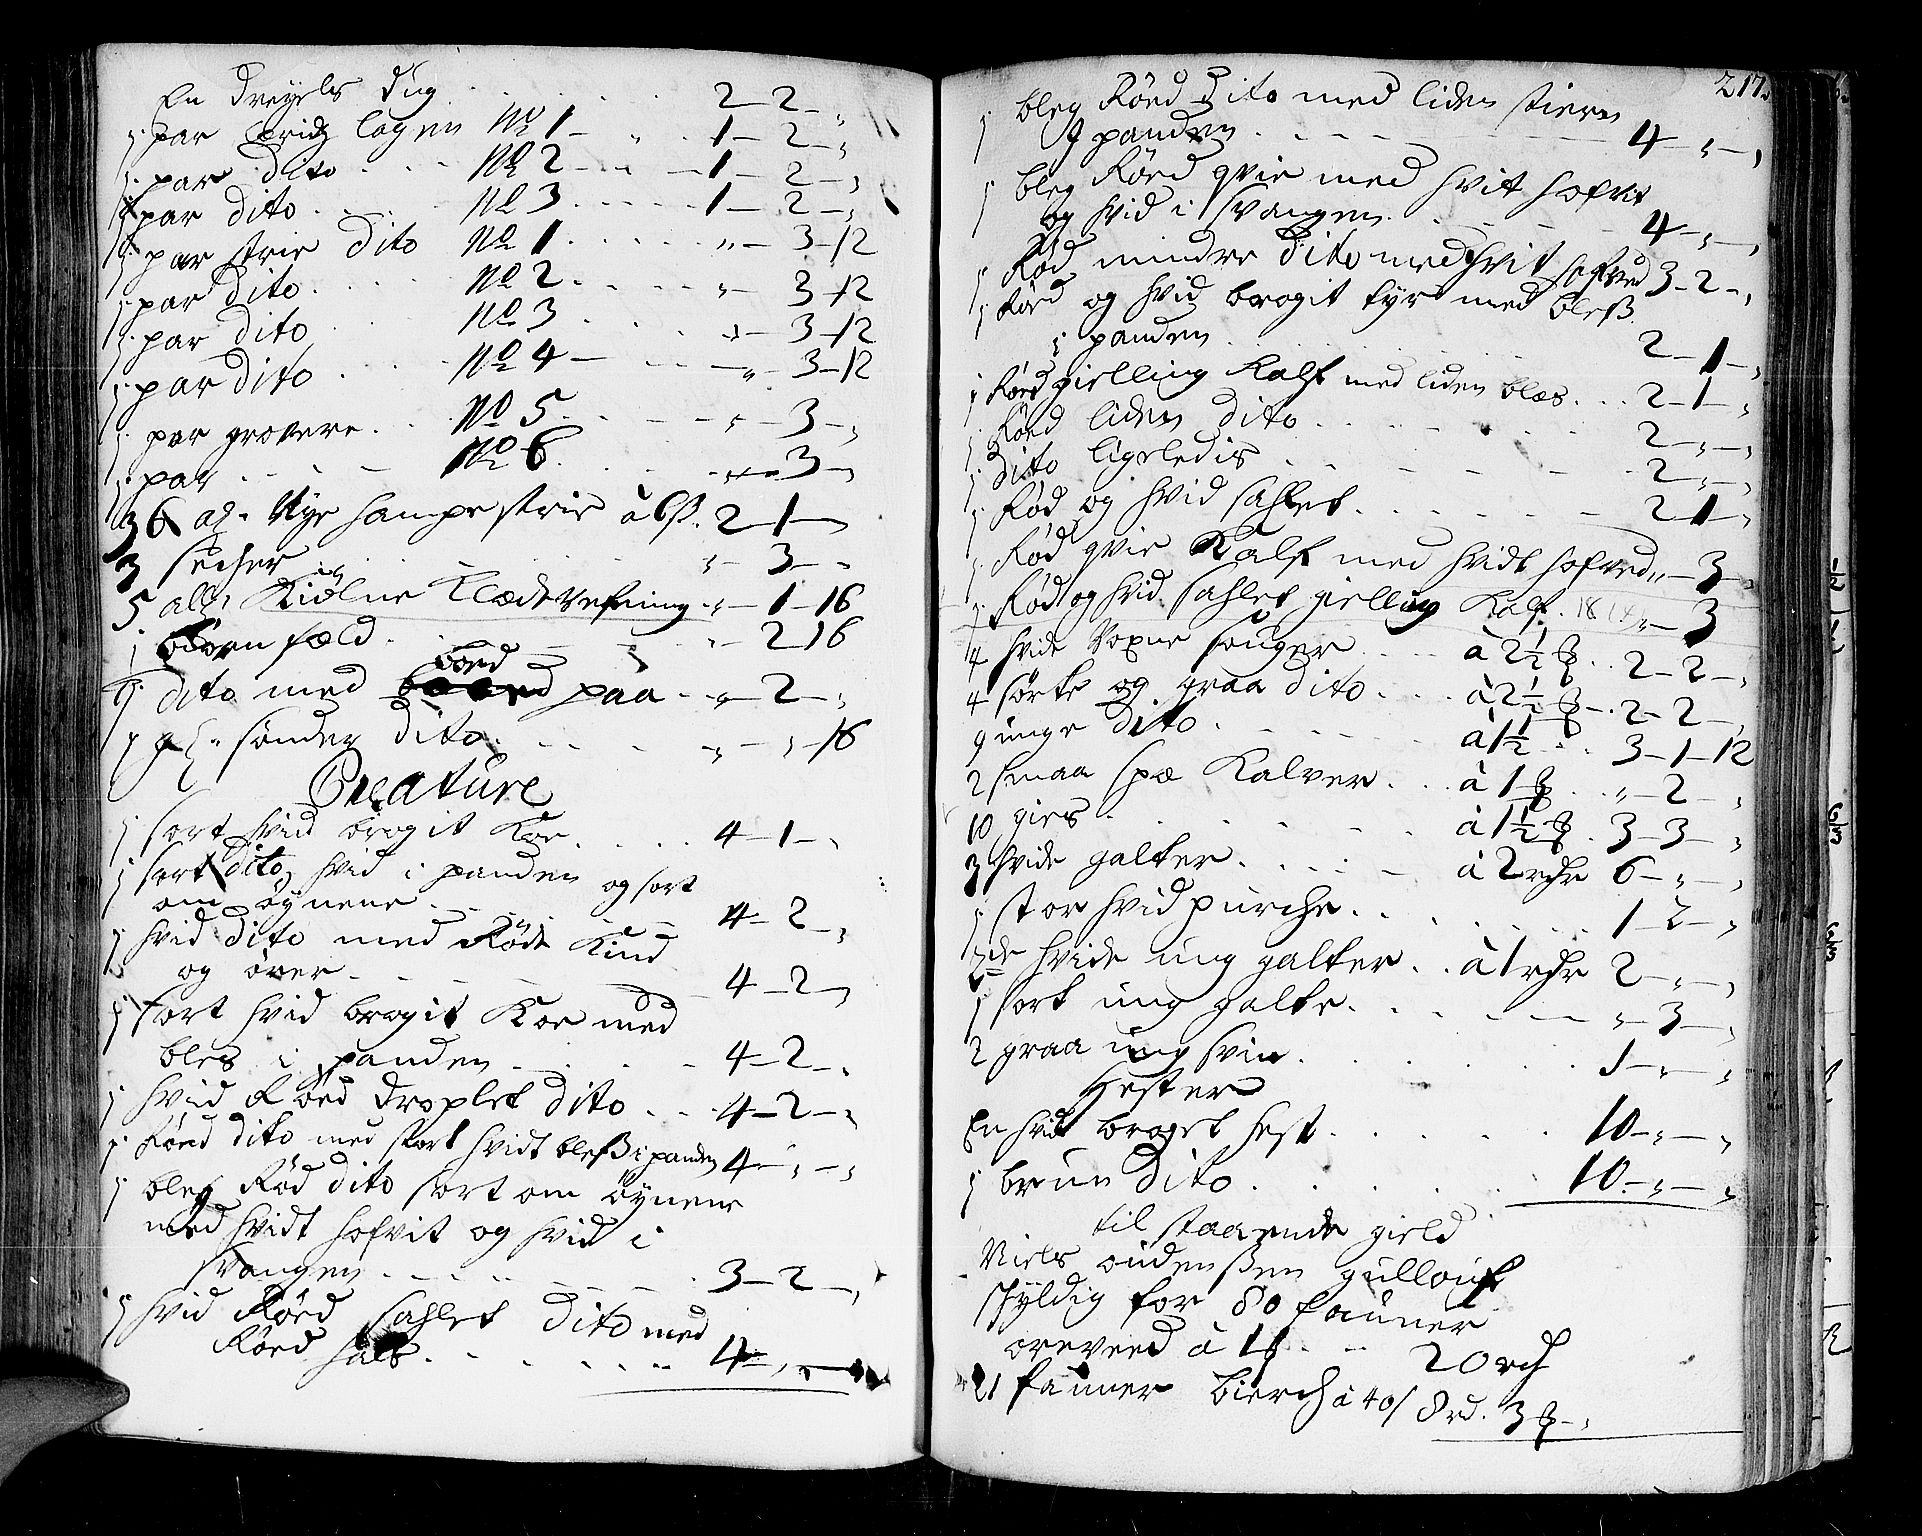 En Dreyels dug . . . 2 - 2 - „
1 par bridz lagen No 1 - „ . . 1 - 2 - „
1 par dito . . . No 2 - . . - 1 - 2 - „
1 par dito . . . No 3 . . . . 1 - 2 - „
1 par strie dito No 1 . . . . „ - 3 - 12
1 par dito . . . No 2 . . . . „ - 3 - 12
1 par dito . . . No 3 . . . . „ - 3 - 12
1 par dito . . . No 4 - . . . „ - 3 - 12
1 par grovere . . No 5 . . . . „ - 3 - „
1 par . . . No 6 . . . . „ - 3 - „
36 al. Nye hampe strie à 6ß . 2 - 1 - „
3 secher . . . . „ - 3 - „
5 all. Kiólne Klæde Vefning . „ - 1 - 16
1 fæld . . . . „ 2 16
1 dito med boed paa . . „ - 2 - „
1 gl. sønder dito . . . . „ - „ - 16
Creature
1 sort hvid brogit Koe . . . . . 4 - 1 - „
1 sort dito hvid i panden og sort
om øynene . . . 4 - 2 - „
1 hvid dito med Røde Kind
og ører . . . 4 - 2 - „
1 sort hvid brogit Koe med
bles i panden . . . . 4 - 2 - „
1 hvid Røed Droplet dito . . . 4 - 2 - „
1 Røed dito med stort hvidt bleß i panden 4 - „ - „
1 bleg Rød dito sort om øynene
med hvidt hofvit og hvid i
Svangen . . . 3 - 2 - „
1 hvid Røed sahlet dito med
Røed hals . . . . 4 - „ - „
217.
1 bleg Røed dito med liden stiern
I panden . . . . 4 - „ - „
1 bleg Røed qvie med hvit hofvit
og hvid i Svangen . . . 4 - „ - „
1 Rød mindre dito med hvit hofved 3 - 2 - „
1 Røed og hvid brogit tyr med bleß
i panden . . . . 2 - 1 - „
1 Røed gielling Kalf med liden blæs . . . 2 - 1 - „
1 Røed liden dito . . . . 2 - „ - „
1 dito ligeledis . . . . 2 - „ - „
1 Rød og hvid sahlet . . . . 2 - 1 - „
1 Rød qvie Kalf med hvidt hofved „ - 3 - „
1 Rød og hvid sahlet gielling Kalf . „ - 3
4 hvide Voxne souger . . . à 2½ . . 2 - 2 - „
4 sorte og graa dito . . . à 2½ - . 2 - 2 - „
9 unge dito . . . . à 1½ . . 3 - 1 - 12
2 smaa spæ Kalver . . . à 1 . . „ - 2 - „
10 gies . . . . à 1½ . 3 - 3 - „
3 hvide galter . . . . à 2 rdr 6 - „ - „
1 stor hvid purche . . . . 1 - 2 - „
2de hvide ung galter . . à 1 rdr 2 - „ - „
1 sort ung galte . . . . „ - 3 - „
2 graa ung svin . . . . 1 - „ - „
Hester
En hvid broget hest . . . . 10 - „ - „
1 brun dito . . . . 10 - „ - „
til staaende gield
Niels gullouf
skyldig for 80 faufner
oreveed à . . 20 rd
21 faufner bierch à 40 ß 8 rd. 3 - „